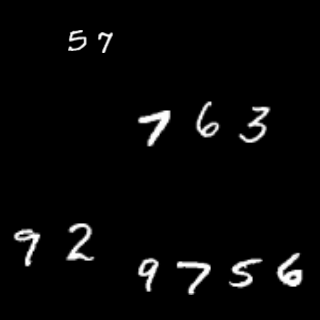 57
763
92
9756